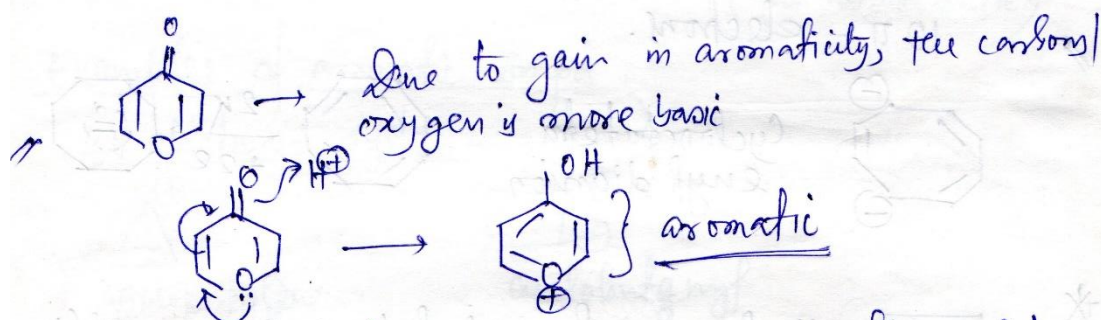 O
→ Due to gain in aromaticity, the carbonyl
O
oxygen is more basic
O H⊕ OH
→ } aromatic
O O
⊕